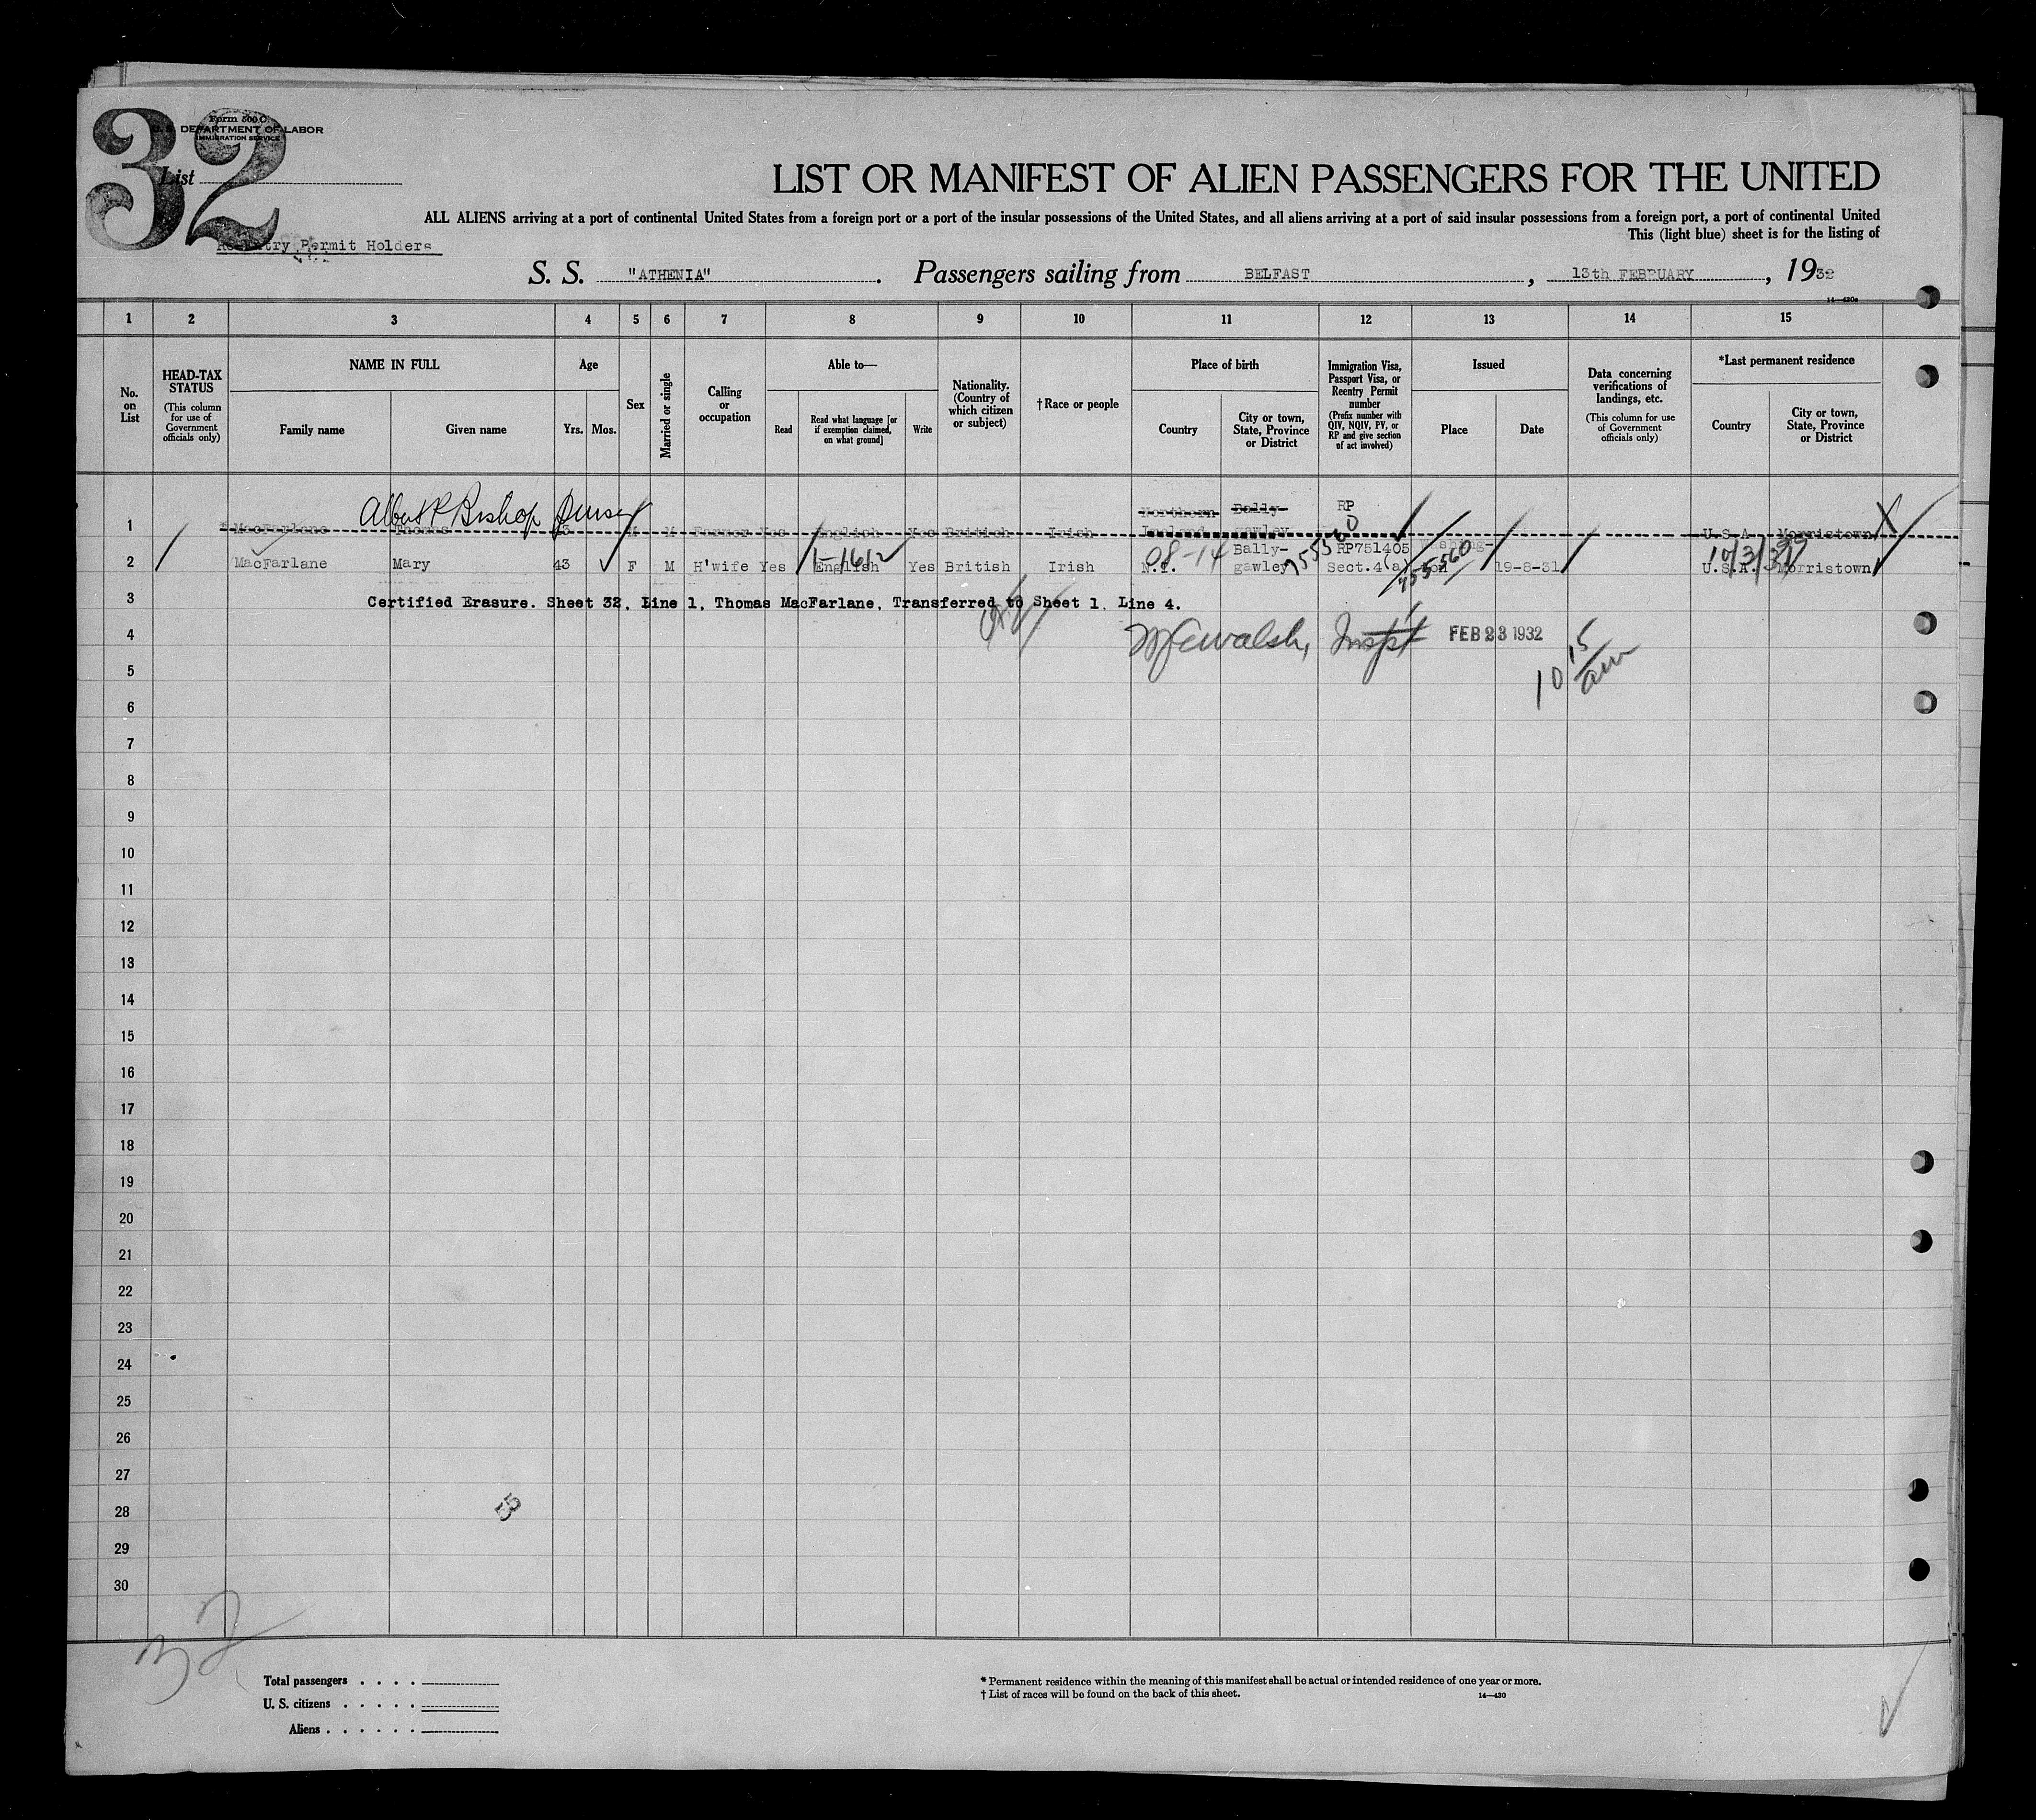 32
Form 500 C
U. S. DEPARTMENT OF LABOR
IMMIGRATION SERVICE
List
LIST OR MANIFEST OF ALIEN PASSENGERS FOR THE UNITED
ALL ALIENS arriving at a port of continental United States from a foreign port or a port of the insular possessions of the United States, and all aliens arriving at a port of said insular possessions from a foreign port, a port of continental United
This (light blue) sheet is for the listing of
Reentry Permit Holders
S. S. "ATHENIA" . Passengers sailing from BELFAST , 13th FEBRUARY , 1932
14—430a
1 2 3 4 5 6 7 8 9 10 11 12 13 14 15
No. on List
HEAD-TAX STATUS
(This column for use of Government officials only)
NAME IN FULL
Family name Given name
Age
Yrs. Mos.
Sex
Married or single
Calling or occupation
Able to—
Read Read what language [or if exemption claimed, on what ground] Write
Nationality. (Country of which citizen or subject)
†Race or people
Place of birth
Country City or town, State, Province or District
Immigration Visa, Passport Visa, or Reentry Permit number
(Prefix number with QIV, NQIV, PV, or RP and give section of act involved)
Issued
Place Date
Data concerning verifications of landings, etc.
(This column for use of Government officials only)
*Last permanent residence
Country City or town, State, Province or District
Albert R Bishop
1 MacFarlane Thomas M M Farmer Yes English Yes British Irish Northern Ireland Bally-gawley RP U.S.A. Morristown
2 MacFarlane Mary 43 F M H'wife Yes English Yes British Irish N.I. Bally-gawley RP751405 Sect.4(a) Washing-ton 19-8-31 U.S.A. Morristown
1-1612
08-14
755560
3 Certified Erasure. Sheet 32, Line 1, Thomas MacFarlane, Transferred to Sheet 1, Line 4.
4 Walsh, Inspt FEB 23 1932
10 15 am
5
6
7
8
9
10
11
12
13
14
15
16
17
18
19
20
21
22
23
24
25
26
27
28
29
30
32
Total passengers . . . .
U. S. citizens . . . . .
Aliens . . . . . .
* Permanent residence within the meaning of this manifest shall be actual or intended residence of one year or more.
† List of races will be found on the back of this sheet. 14—430